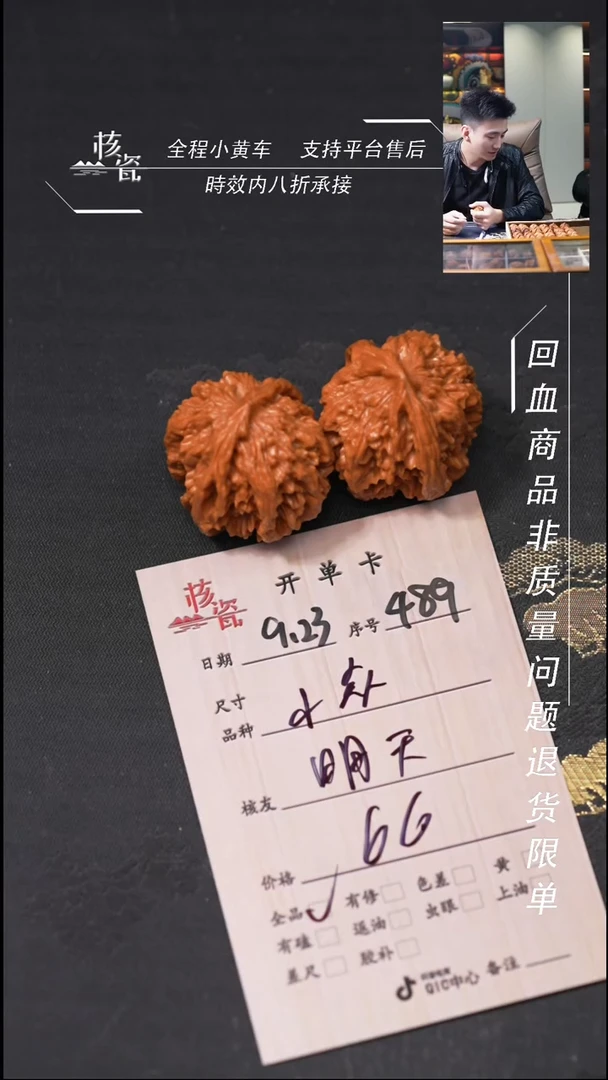 核瓷
全程小黄车 支持平台售后
時效内八折承接
回血商品非质量问题退货限单
核瓷
开单卡
日期 9.23 序号 489
尺寸
品种
明天
核友
66
价格
全品 有修 色差 黄
有磕 返油 虫眼 上油
差尺 胶补
QIC中心 备注